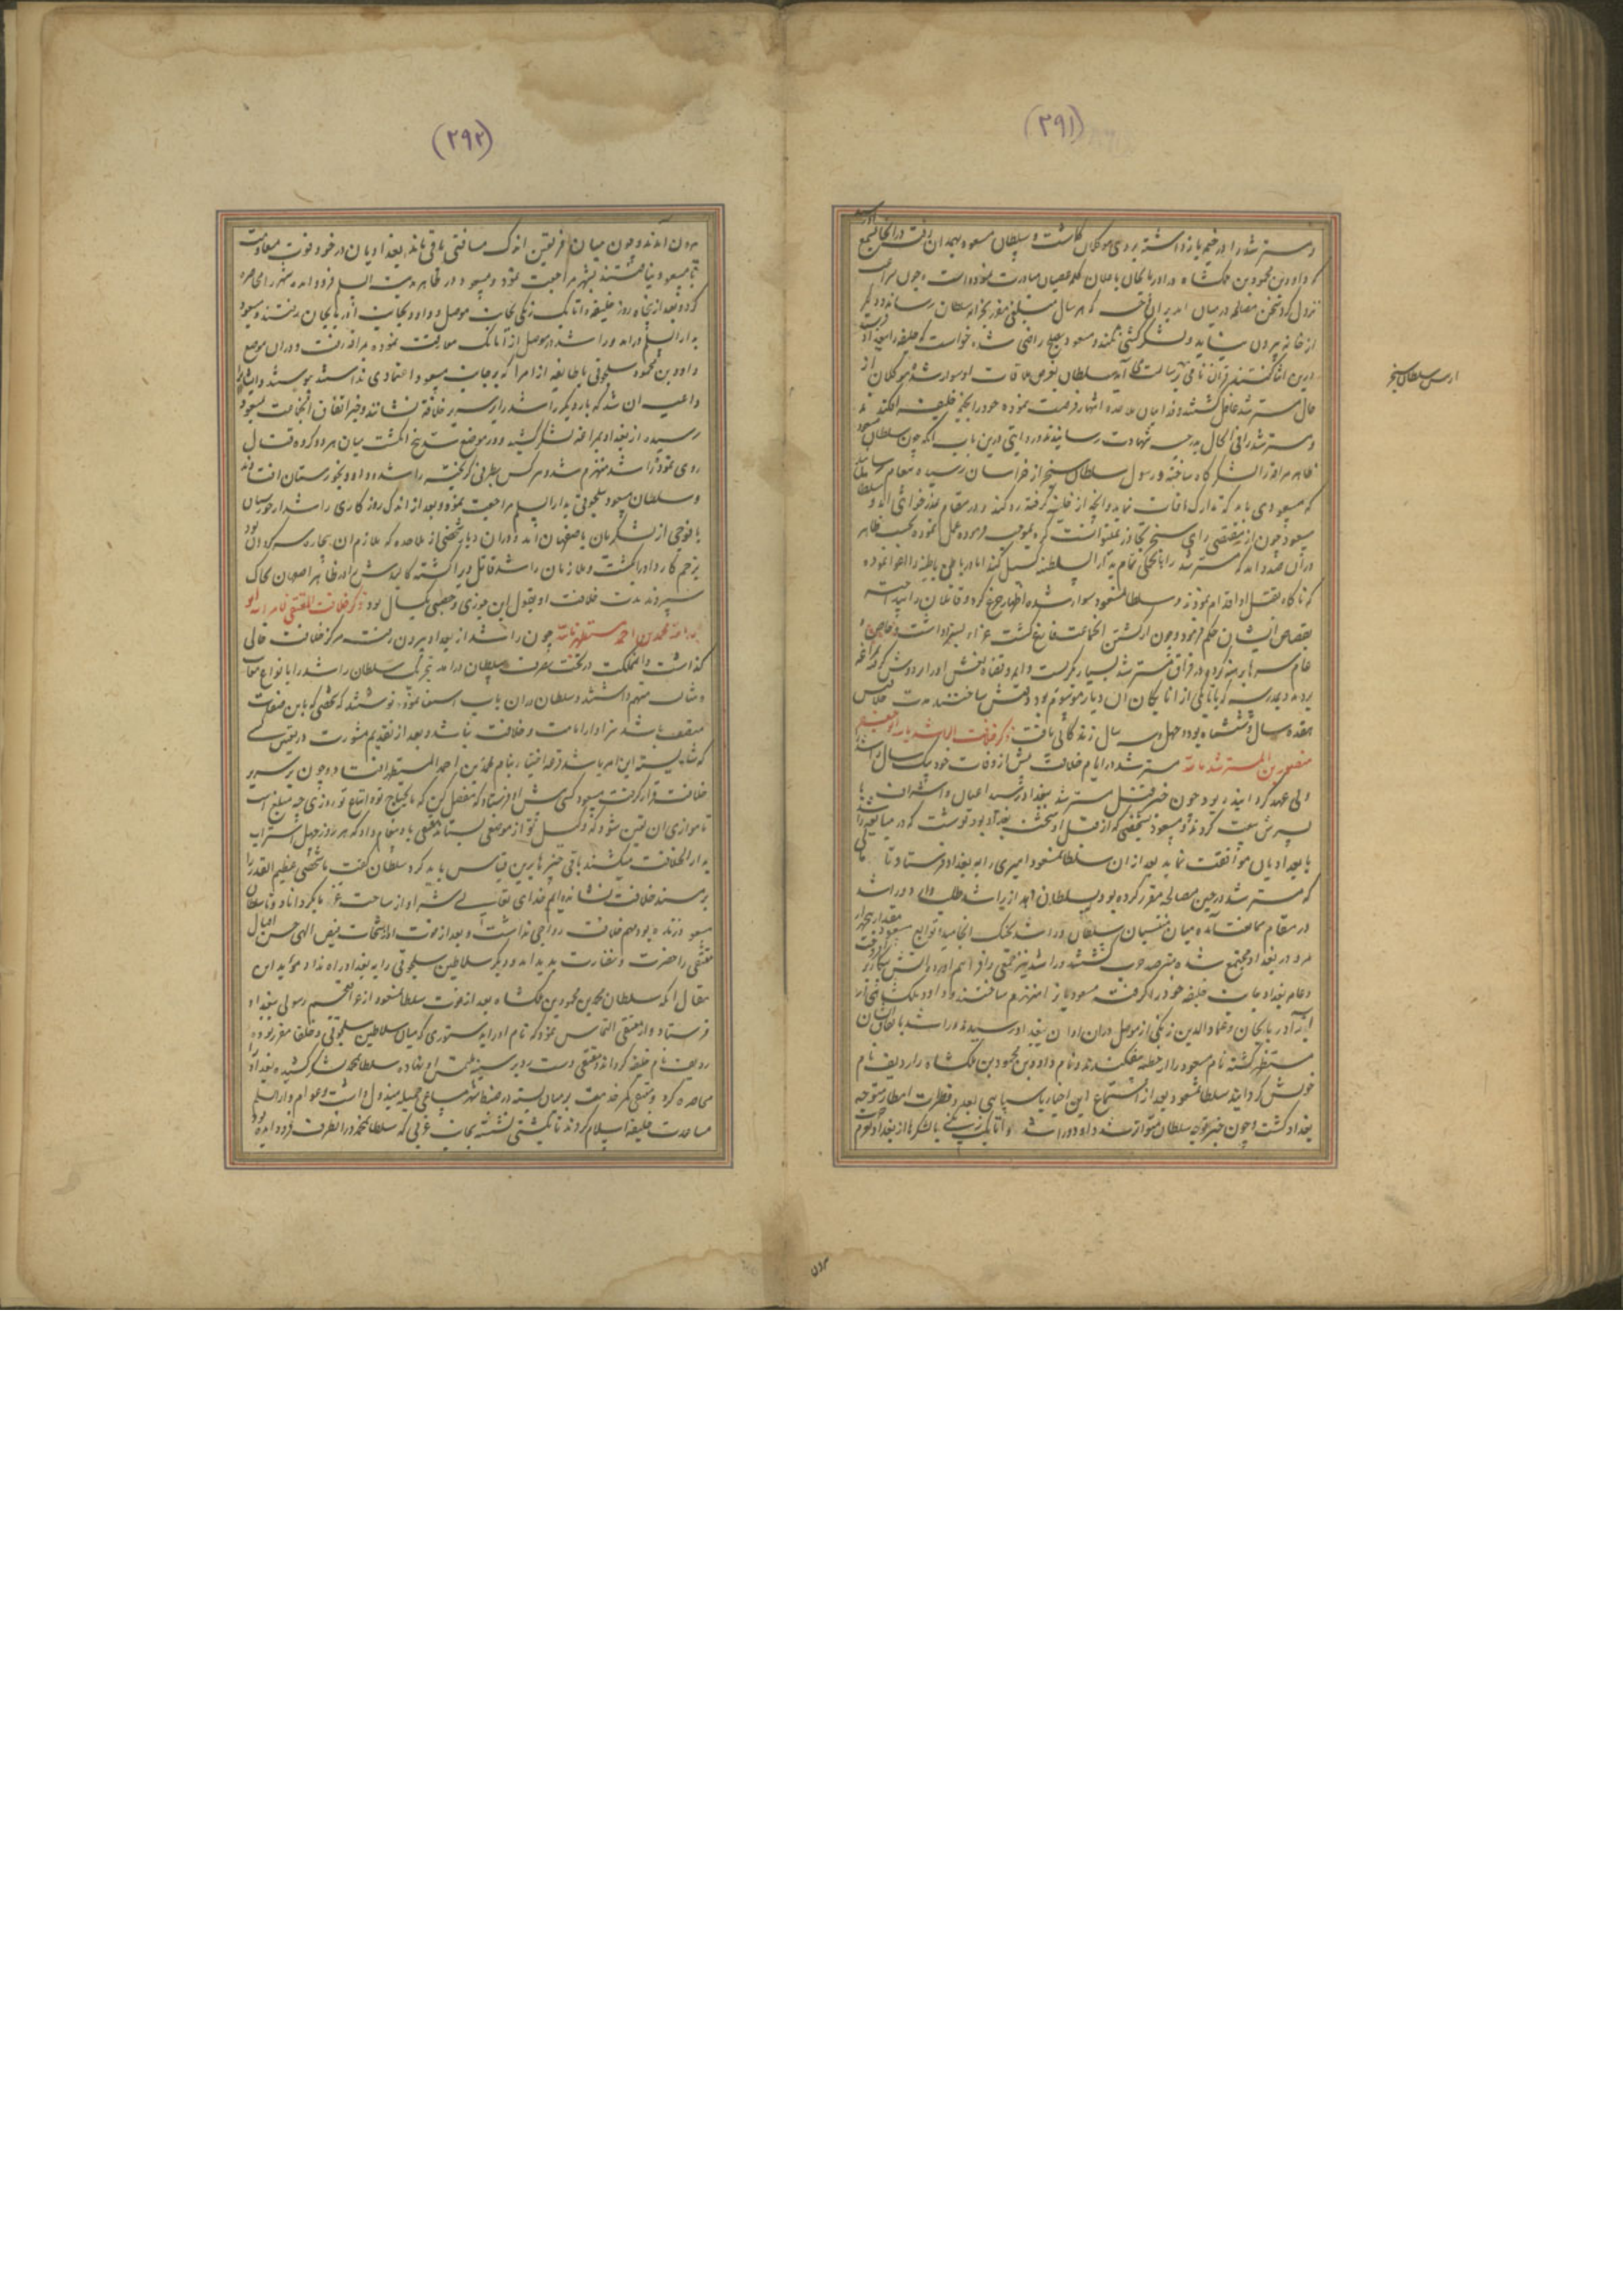 (۲۹۱)
و مسترشد را در خیمه بازداشته بروی موکلان کماشت و سلطان مسعود بهمدان رفت در انجا شنید
که داود بن محمود بن ملکشاه در اذربایجان باعلان کلمه عصیان مبادرت نموده است و چون
نزول کرد سخن مصالحه در میان امد بران که هر سال مبلغی مقرر بخزانه سلطان رساند و دیگر
از خانه بیرون نیاید و لشکرکشی نکند و مسعود بصلح راضی شده خواست که خلیفه را ببغداد
درین اثنا گفتند قران نامی برسالت آمد سلطان بغرض ملاقات او سوار شد و موکلان از
حال مسترشد غافل گشتند و فداییان ملاحده انتهاز فرصت نموده خود را بخیمه خلیفه افکندند
و مسترشد را فی الحال بدرجه شهادت رسانیدند و روایتی درین باب انکه چون سلطان مسعود
ظاهر مراغه را لشکرگاه ساخته و رسول سلطان سنجر از خراسان رسیده پیغام رسانید
که مسعود می باید که تدارک مافات نماید و انچه از خلیفه گرفته رد کند و در مقام عذرخواهی اید و سلطان
مسعود چون از مقتضی رای سنجر تجاوز نمیتوانست کرد بموجب فرموده عمل نموده بحسب ظاهر
دران صدد امد که مسترشد را با تجملی تمام بدار السلطنه گسیل کند اما در باطن باطنیه را اغوا نموده
که ناگاه بقتل او اقدام نمودند و سلطان مسعود سوار شده اظهار جزع کرد و قاتلان را
بقصاص ایشان حکم فرمود و چون از کشتن انجماعت فارغ گشت عزا و بسزا داشت و خاص و
عام سرها برهنه کرده در فراق مسترشد بسیار بگریست و ایمه و قضاة نعش او را بر دوش گرفته بمراغه
بردند و بمدرسه که باتابکی از اتابکان ان دیار موسوم بود دفنش ساختند مدت خلافتش
هفده سال و ششماه بود و چهل و سه سال زندگانی یافت ذکر خلافت الراشد بالله ابو جعفر
منصور بن المسترشد بالله مسترشد در ایام خلافت پیش از وفات خود بیک سال راشد را
ولی عهد گردانیده بود چون خبر قتل مسترشد ببغداد رسید اعیان و اشراف با
پسرش بیعت کردند و مسعود بشخصی که از قبل او شحنه بغداد بود نوشت که در مبایعه راشد
با بغدادیان موافقت نماید بعد ازان سلطان مسعود امیری را به بغداد فرستاد تا مالی
که مسترشد در حین مصالحه مقرر کرده بود بسلطان دهد از راشد طلب دارد و راشد
در مقام ممانعت آمده میان منتسبان سلطان و راشد بجنگ انجامید و توابع مسعود
مرد در بغداد مجتمع شده مترصد حرب گشتند و راشد نیز جمعی را فراهم آورد و آتش پیکار
و عام بغداد جانب خلیفه خود را گرفته مسعودیان را منهزم ساختند و داود ملکشاهی از
اذربایجان و عماد الدین زنگی از موصل دران اوان ببغداد رسیدند و راشد باتفاق ان
مستظهر گشته نام مسعود را از خطبه بیفکندند و نام داود بن محمود بن ملکشاه را ردیف نام
خویش گردانید سلطان مسعود بعد از استماع این اخبار با سپاهی بعدد قطرات امطار متوجه
بغداد گشت و چون خبر توجه سلطان متواتر شد داود و راشد و اتابک زنگی با لشکرها از بغداد
ارس سلطان سنجر
برون
(۲۹۲)
برون آمدند و چون میان فریقین اندک مسافتی باقی ماند بغدادیان در خود قوت مقاومت
با مسعود نیافتند بشهر مراجعت نمود و مسعود در ظاهر مدینة السلم فرود امده شهر را محاصره
کرد و بعد از پنجاه روز خلیفه و اتابک زنگی بجانب موصل و داود بجانب آذربایجان رفتند و مسعود
بدار السلم درامد و راشد در موصل از اتابک مفارقت نموده بمراغه رفت و دران موضع
داود بن محمود سلجوقی با طایفه از امرا که بر جانب مسعود اعتمادی نداشتند پیوستند و ایشانرا
داعیه ان شد که بار دیگر راشد را بر سریر خلافت نشانند و خبر اتفاق انجماعت بمسعود
رسیده از بغداد بمراغه لشکر کشید و در موضع پنج انگشت میان هر دو گروه قتال
روی نمود راشد منهزم شد و هر کس بطرفی گریخته راشد و داود بخوزستان افتادند
و سلطان مسعود سلجوقی بدار السلم مراجعت نمود و بعد از اندک روزگاری راشد از خوزستان
با فوجی از لشکریان باصفهان امد و دران دیار شخصی از ملاحده که ملازم ان بیچاره سرگردان بود
بزخم کارد او را بکشت و ملازمان راشد قاتل ویرا کشته کالبدش را در ظاهر اصفهان بخاک
سپردند مدت خلافت او بقول ابن جوزی و جمعی یکسال بود ذکر خلافت المقتفی لامر الله ابو
عبد الله محمد بن احمد مستظهر بالله چون راشد از بغداد بیرون رفت مرکز خلافت خالی
گذاشت و مملکت در تحت تصرف سلطان درامد سلطان راشد را بانواع معایب
و مثالب متهم داشتند و سلطان دران باب استفتا نمود نوشتند که شخصی که باین صفات
متصف باشد سزاوار امامت و خلافت نباشد و بعد از تقدیم مشورت در تعیین کسی
که شایسته این امر باشد قرعه اختیار بنام محمد بن احمد المستظهر افتاد و چون بر سریر
خلافت قرار گرفت مسعود کسی پیش او فرستاد که مفصل کن که مایحتاج تو و اتباع تو روزی چه مبلغ است
تا موازی ان تعیین شود که وکیل تو از موضعی بستاند مقتفی باو پیغام داد که هر روز چهل استر اب
بدار الخلافت میکشند باقی چیزها برین قیاس باید کرد سلطان گفت ما شخصی عظیم القدر را
بر مسند خلافت نشانده ایم خدای تعالی شر او از ساحت ما بگرداناد و تا سلطان
مسعود زنده بود مهم خلافت رواجی نداشت و بعد از فوت او از رشحات فیض الهی چمن اقبال
مقتفی را خضرت و نضارت پدید امد و دیگر سلاطین سلجوقی را به بغداد راه نداد موید این
مقال انکه سلطان محمد بن محمود بن ملکشاه بعد از فوت سلطان مسعود از عراق عجم رسولی ببغداد
فرستاد و از مقتفی التماس نمود که نام او را بدستوری که میان سلاطین سلجوقی و خلفا مقرر بوده
ردیف نام خلیفه گرداند مقتفی دست رد بر سینه ملتمس او نهاده سلطان محمد لشکر کشیده بغداد را
محاصره کرد و مقتفی کمر خدمت بر میان بسته در ضبط شهر مساعی جمیله مبذول داشت و عوام دار السلم
مساعدت خلیفه اسلام کردند تا بکشتی نشسته بجانب غربی که سلطان محمد در انطرف فرود امده بود